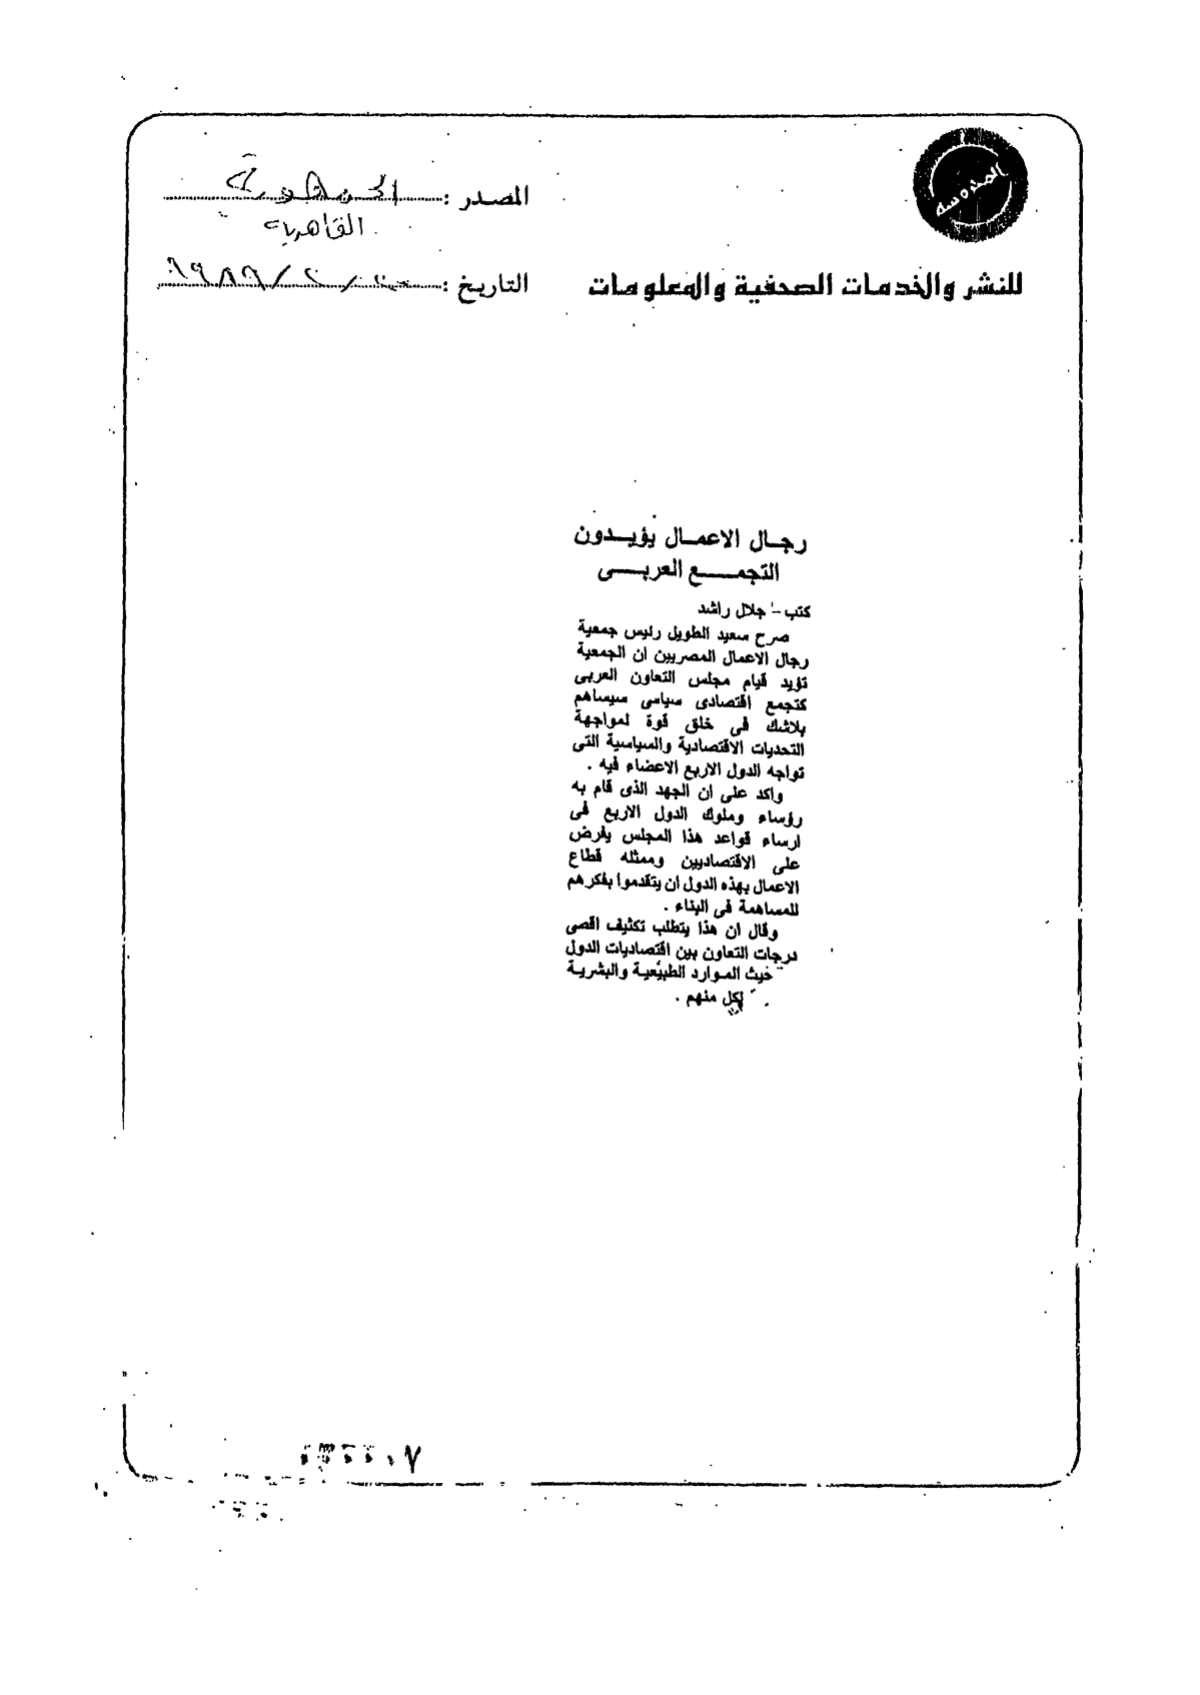 المصدر : الجمهورية
القاهرية
للنشر والخدمات الصحفية والمعلومات
التاريخ : ١٩٨٩/٢/٢٠
رجال الاعمال يؤيدون
التجمع العربى
كتب - جلال راشد
صرح سعيد الطويل رئيس جمعية
رجال الاعمال المصريين ان الجمعية
تؤيد قيام مجلس التعاون العربى
كتجمع اقتصادى سياسى سيساهم
بلاشك فى خلق قوة لمواجهة
التحديات الاقتصادية والسياسية التى
تواجه الدول الاربع الاعضاء فيه .
واكد على ان الجهد الذى قام به
رؤساء وملوك الدول الاربع فى
ارساء قواعد هذا المجلس يفرض
على الاقتصاديين وممثله قطاع
الاعمال بهذه الدول ان يتقدموا بفكرهم
للمساهمة فى البناء .
وقال ان هذا يتطلب تكثيف اقصى
درجات التعاون بين اقتصاديات الدول
حيث الموارد الطبيعية والبشرية
لكل منهم .